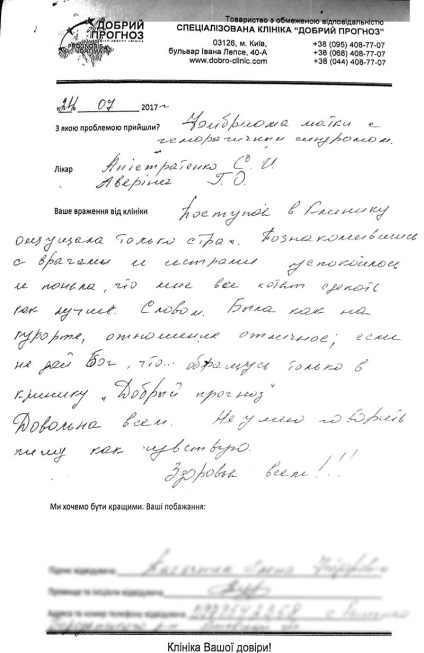 ДОБРИЙ
ПРОГНОЗ
PROGNOSIS
OPTIMUS
Товариство з обмеженою відповідальністю
СПЕЦІАЛІЗОВАНА КЛІНІКА "ДОБРИЙ ПРОГНОЗ"
03126, м. Київ,
бульвар Івана Лепсе, 40-А
www.dobro-clinic.com
+38 (095) 408-77-07
+38 (068) 408-77-07
+38 (044) 408-77-07
24 07 2017 г
З якою проблемою прийшли? Фибриома матки с
геморагическим синдромом.
Лікар Аністратенко С. И.
Аверіна Г. О.
Ваше враження від клініки Поступок в Клинику
ощущала только страх. Познакомившись
с врачами и сестрами успокоилась
и поняла, что мне все хотят сделать
как лучше. Словом. Была как на
курорте, отношение отличное; если
не дай Бог, что... обращусь только в
клинику „Добрый прогноз"
Довольна всем. Не умею говорить
пишу как чувствую.
Здоровья всем!!!
Ми хочемо бути кращими. Ваші побажання:
Клініка Вашої довіри!